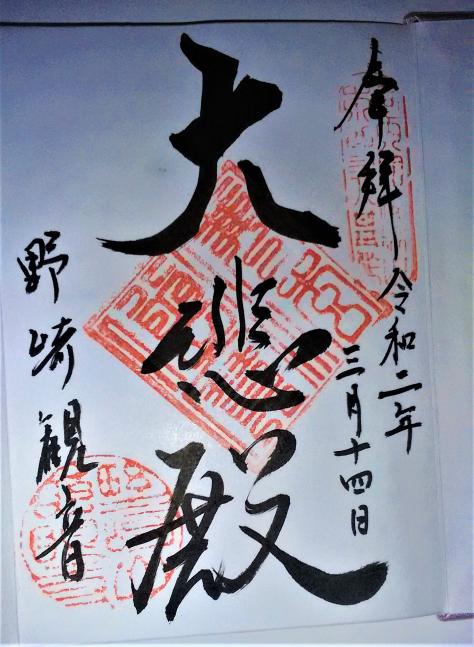 奉拝
令和二年
三月十四日
大悲殿
野崎観音